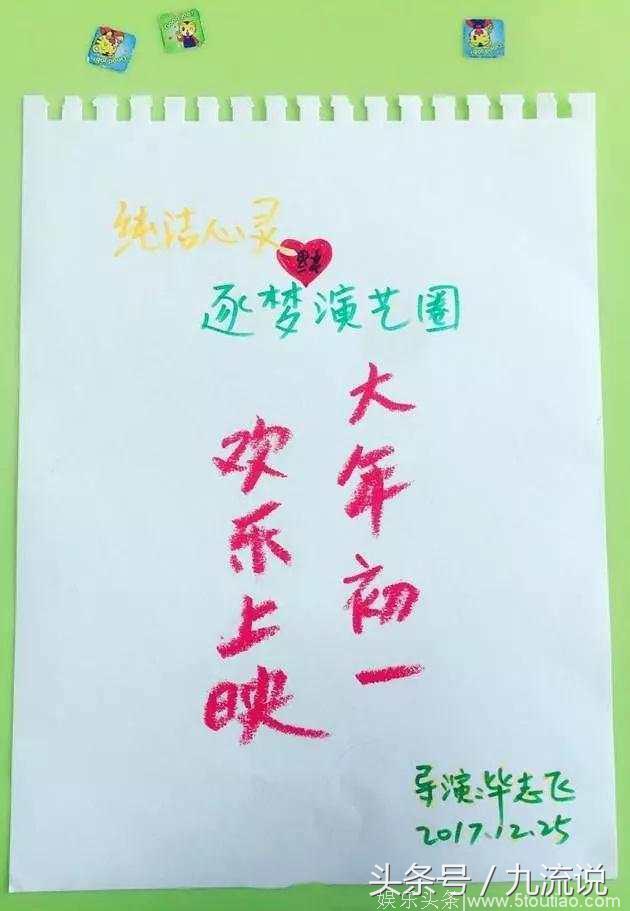 纯洁心灵
逐梦演艺圈
大年初一
欢乐上映
导演:毕志飞
2017.12.25
头条号／九流说
娱乐头条 www.5toutiao.com